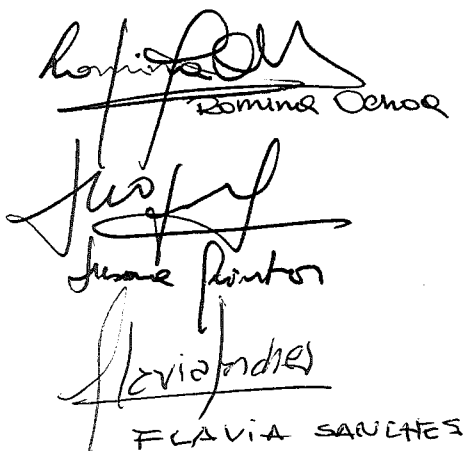 Romina Ochoa
Susana Quinton
Flavia Sanches
FLAVIA SANCHES